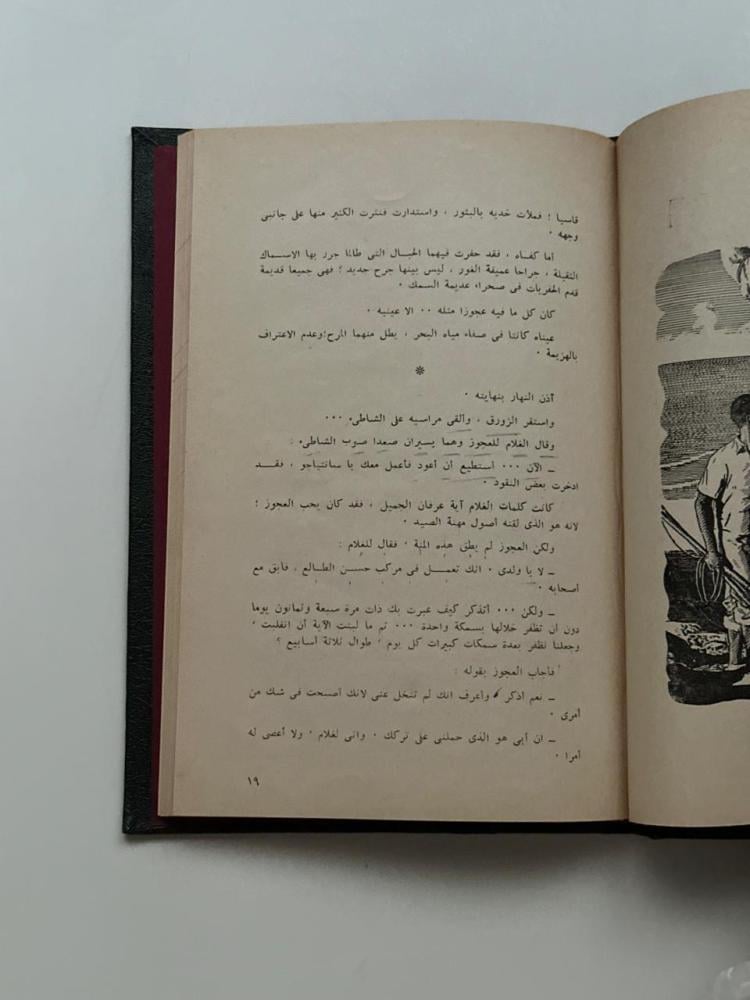 قاسيا ! فملأت خديه بالبثور ، واستدارت فنثرت الكثير منها على جانبى
وجهه .
أما كفاه ، فقد حفرت فيهما الحبال التى طالما جرر بها الاسماك
الثقيلة ، جراحا عميقة الغور ، ليس بينها جرح جديد ! فهى جميعا قديمة
قدم الحفريات فى صحراء عديمة السمك .
كان كل ما فيه عجوزا مثله ٠٠ الا عينيه .
عيناه كانتا فى صفاء مياه البحر ، يطل منهما المرح؛وعدم الاعتراف
بالهزيمة .
*
آذن النهار بنهايته .
واستقر الزورق ، وألقى مراسيه على الشاطىء ٠٠٠
وقال الغلام للعجوز وهما يسيران صعدا صوب الشاطىء :
ــ الآن ٠٠٠ أستطيع أن أعود فأعمل معك يا سانتياجو ، فقــد
ادخرت بعض النقود .
كانت كلمات الغلام آية عرفان الجميل ، فقد كان يحب العجوز ؛
لانه هو الذى لقنه أصول مهنة الصيد .
ولكن العجوز لم يطق هذه المنة ، فقال للغلام :
ــ لا يا ولدى . انك تعمــل فى مركب حســن الطــالع ، فابق مع
أصحابه .
ــ ولكن ٠٠٠ أتذكر كيف عبرت بك ذات مرة سبعة وثمانون يوما
دون أن تظفر خلالها بسمكة واحدة ٠٠٠ ثم ما لبثت الآية أن انقلبت ،
وجعلنا نظفر بعدة سمكات كبيرات كل يوم ، طوال ثلاثة أسابيع ؟
فأجاب العجوز بقوله :
ــ نعم اذكر ، وأعرف انك لم تتخل عنى لانك أصبحت فى شك من
أمرى .
ــ ان أبى هو الذى حملنى على تركك . وانى لغلام . ولا أعصى له
أمرا .
١٩